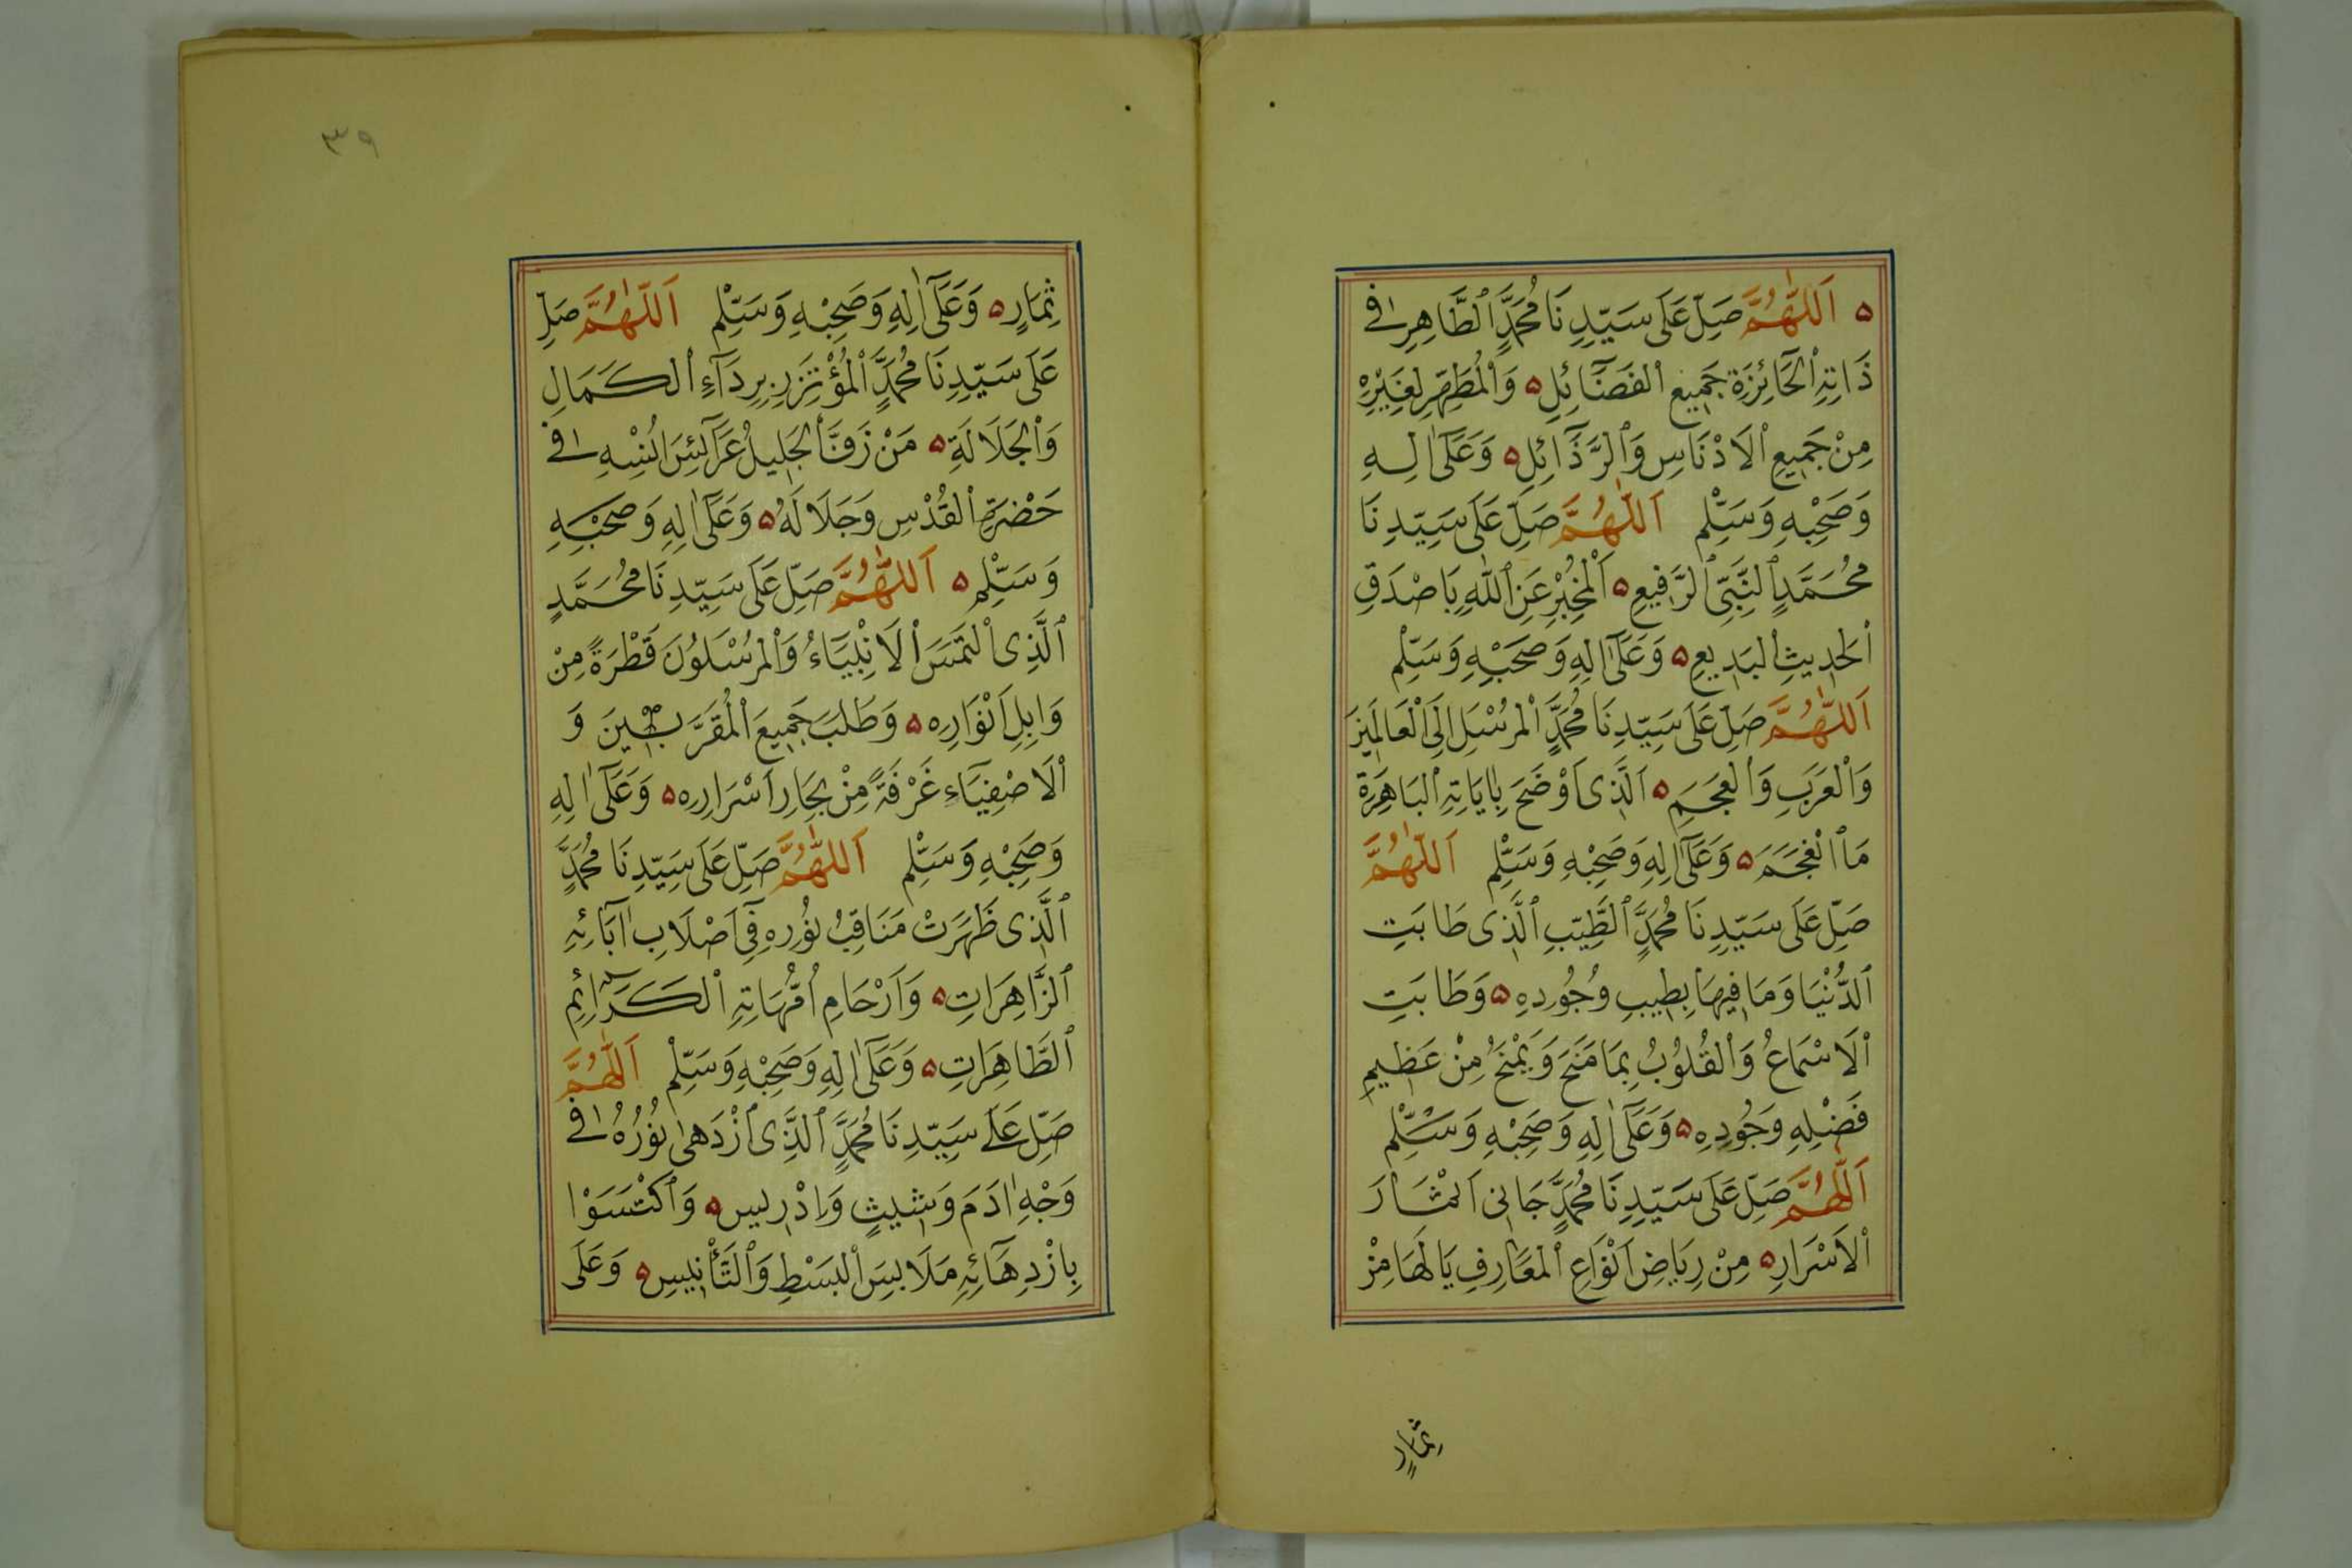 ه اَللّٰهُمَّ صَلِّ عَلَى سَيِّدِنَا مُحَمَّدٍ ٱلطَّاهِرِ فِى
ذَاتِهِ ٱلْحَآئِزَةِ جَمِيعِ ٱلفَضَآئِلِ ه وَٱلْمُطَهِّرِ لِغَيْرِهِ
مِنْ جَمِيعِ ٱلاَدْنَاسِ وَٱلرَّذَآئِلِ ه وَعَلَىٓ اٰلِهِ
وَصَحْبِهِ وَسَلِّمْ اَللّٰهُمَّ صَلِّ عَلَى سَيِّدِنَا
مُحَمَّدٍ ٱلنَّبِىِّ ٱلرَّفِيعِ ه اَلْمُخْبِرِ عَنِ ٱللّٰهِ بِاَصْدَقِ
ٱلحَدِيثِ ٱلبَدِيعِ ه وَعَلَىٓ اٰلِهِ وَصَحْبِهِ وَسَلِّمْ
اَللّٰهُمَّ صَلِّ عَلَى سَيِّدِنَا مُحَمَّدٍ ٱلْمُرْسَلِ اِلَى ٱلْعَالَمِينَ
وَٱلْعَرَبِ وَٱلْعَجَمِ ه اَلَّذِى اَوْضَحَ بِاٰيَاتِهِ ٱلبَاهِرَةِ
مَا ٱنْعَجَمَ ه وَعَلَىٓ اٰلِهِ وَصَحْبِهِ وَسَلِّمْ اَللّٰهُمَّ
صَلِّ عَلَى سَيِّدِنَا مُحَمَّدٍ ٱلطَّيِّبِ ٱلَّذِى طَابَتِ
ٱلدُّنْيَا وَمَا فِيهَا بِطِيبِ وُجُودِهِ ه وَطَابَتِ
ٱلاَسْمَاعُ وَٱلْقُلُوُبُ بِمَا مَنَحَ وَيَمْنَحُ مِنْ عَظِيمِ
فَضْلِهِ وَجُودِهِ ه وَعَلَىٓ اٰلِهِ وَصَحْبِهِ وَسَلِّمْ
اَللّٰهُمَّ صَلِّ عَلَى سَيِّدِنَا مُحَمَّدٍ جَانِى اَثْمَارَ
ٱلاَسْرَارِ ه مِنْ رِيَاضِ اَنْوَاعِ ٱلْمَعَارِفِ يَا لَهَا مِنْ
ثِمَارٍ
٣٩
ثِمَارٍ ه وَعَلَىٓ اٰلِهِ وَصَحْبِهِ وَسَلِّمْ اَللّٰهُمَّ صَلِّ
عَلَى سَيِّدِنَا مُحَمَّدٍ ٱلْمُؤْتَزِرِ بِرِدَآءِ ٱلكَمَالِ
وَٱلْجَلَالَةِ ه مَنْ زَفَّ ٱلْجَلِيلُ عَرَآئِسَ اُنْسِهِ فِى
حَضْرَةِ ٱلقُدْسِ وَجَلَا لَهُ ه وَعَلَىٓ اٰلِهِ وَصَحْبِهِ
وَسَلِّمْ ه اَللّٰهُمَّ صَلِّ عَلَى سَيِّدِنَا مُحَمَّدٍ
ٱلَّذِى ٱلْتَمَسَ ٱلاَنْبِيَآءُ وَٱلْمُرْسَلُوُنَ قَطْرَةً مِنْ
وَابِلِ اَنْوَارِهِ ه وَطَلَبَ جَمِيعَ ٱلْمُقَرَّبِينَ وَ
ٱلاَصْفِيَآءِ غَرْفَةً مِنْ بِحَارِ اَسْرَارِهِ ه وَعَلَىٓ اٰلِهِ
وَصَحْبِهِ وَسَلِّمْ اَللّٰهُمَّ صَلِّ عَلَى سَيِّدِنَا مُحَمَّدٍ
ٱلَّذِى ظَهَرَتْ مَنَاقِبُ نُوُرِهِ فِىٓ اَصْلَابِ اٰبَآئِهِ
ٱلزَّاهِرَاتِ ه وَاَرْحَامِ اُمَّهَاتِهِ ٱلْكَرَآئِمِ
ٱلطَّاهِرَاتِ ه وَعَلَىٓ اٰلِهِ وَصَحْبِهِ وَسَلِّمْ اَللّٰهُمَّ
صَلِّ عَلَى سَيِّدِنَا مُحَمَّدٍ ٱلَّذِى ٱزْدَهٰى نُوُرُهُ فِى
وَجْهِ اٰدَمَ وَشِيثٍ وَاِدْرِيسَ ه وَٱكْتَسَوْا
بِازْدِهَآئِهِ مَلَابِسَ ٱلبَسْطِ وَٱلتَّأْنِيسِ ه وَعَلَى